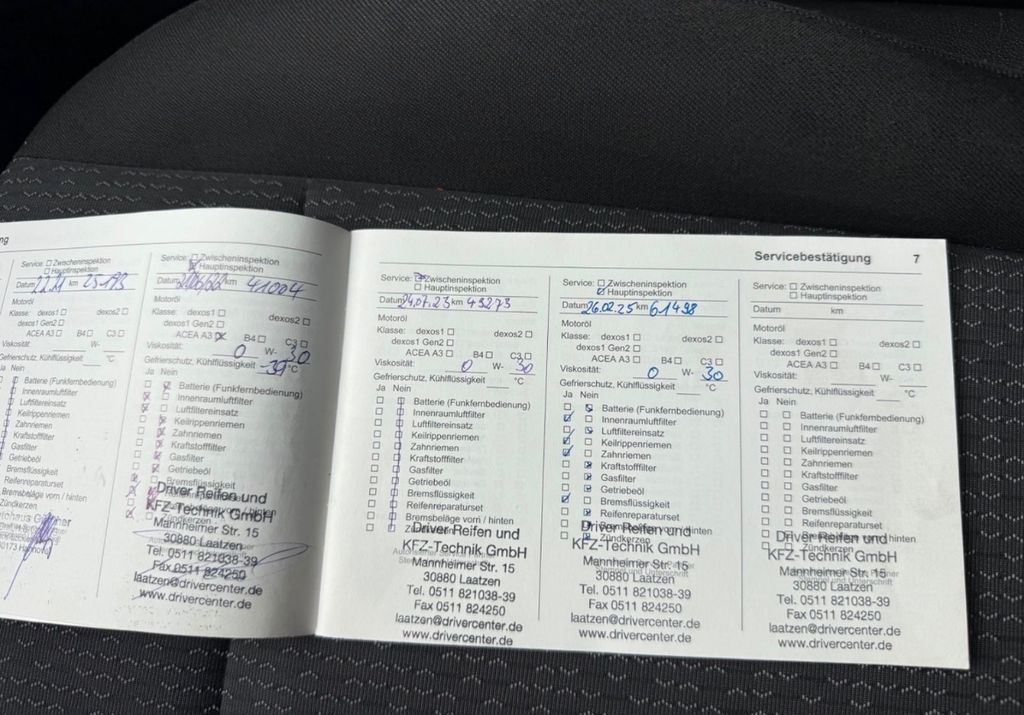 ng
Datum 22.21 km 25193
Motoröl
Klasse: dexos1 ☐ dexos2 ☐
dexos1 Gen2 ☐
ACEA A3 ☐ B4 ☐ C3 ☐
Viskosität: W-
Gefrierschutz, Kühlflüssigkeit °C
Ja Nein
Batterie (Funkfernbedienung)
Innenraumluftfilter
Luftfiltereinsatz
Keilrippenriemen
Zahnriemen
Kraftstofffilter
Gasfilter
Getriebeöl
Bremsflüssigkeit
Reifenreparaturset
Bremsbeläge vorn / hinten
Zündkerzen
Service: ☐ Zwischeninspektion
☒ Hauptinspektion
km 41004
Motoröl
Klasse: dexos1 ☐ dexos2 ☐
dexos1 Gen2 ☐
ACEA A3 ☒ B4 ☐ C3 ☐
Viskosität: 0 W- 30
Gefrierschutz, Kühlflüssigkeit -39 °C
Ja Nein
Batterie (Funkfernbedienung)
Innenraumluftfilter
Luftfiltereinsatz
Keilrippenriemen
Zahnriemen
Kraftstofffilter
Gasfilter
Getriebeöl
Bremsflüssigkeit
Driver Reifen und
KFZ-Technik GmbH
Mannheimer Str. 15
30880 Laatzen
Tel. 0511 821038-39
Fax 0511 824250
laatzen@drivercenter.de
www.drivercenter.de
Servicebestätigung 7
Service: ☒ Zwischeninspektion
☐ Hauptinspektion
Datum 24.07.23 km 49273
Motoröl
Klasse: dexos1 ☐ dexos2 ☐
dexos1 Gen2 ☐
ACEA A3 ☐ B4 ☐ C3 ☐
Viskosität: 0 W- 30
Gefrierschutz, Kühlflüssigkeit °C
Ja Nein
☐ ☐ Batterie (Funkfernbedienung)
☐ ☐ Innenraumluftfilter
☐ ☐ Luftfiltereinsatz
☐ ☐ Keilrippenriemen
☐ ☐ Zahnriemen
☐ ☐ Kraftstofffilter
☐ ☐ Gasfilter
☐ ☐ Getriebeöl
☐ ☐ Bremsflüssigkeit
☐ ☐ Reifenreparaturset
☐ ☐ Bremsbeläge vorn / hinten
Driver Reifen und
KFZ-Technik GmbH
Mannheimer Str. 15
30880 Laatzen
Tel. 0511 821038-39
Fax 0511 824250
laatzen@drivercenter.de
www.drivercenter.de
Service: ☐ Zwischeninspektion
☑ Hauptinspektion
Datum 26.02.25 km 61498
Motoröl
Klasse: dexos1 ☐ dexos2 ☐
dexos1 Gen2 ☐
ACEA A3 ☐ B4 ☐ C3 ☐
Viskosität: 0 W- 30
Gefrierschutz, Kühlflüssigkeit °C
Ja Nein
☐ ☑ Batterie (Funkfernbedienung)
☑ ☐ Innenraumluftfilter
Luftfiltereinsatz
Keilrippenriemen
☑ ☐ Zahnriemen
☐ ☑ Kraftstofffilter
☐ ☑ Gasfilter
☐ ☑ Getriebeöl
☑ ☐ Bremsflüssigkeit
☐ ☑ Reifenreparaturset
Zündkerzen
Driver Reifen und
KFZ-Technik GmbH
Mannheimer Str. 15
30880 Laatzen
Tel. 0511 821038-39
Fax 0511 824250
laatzen@drivercenter.de
www.drivercenter.de
Service: ☐ Zwischeninspektion
☐ Hauptinspektion
Datum km
Motoröl
Klasse: dexos1 ☐ dexos2 ☐
dexos1 Gen2 ☐
ACEA A3 ☐ B4 ☐ C3 ☐
Viskosität: W-
Gefrierschutz, Kühlflüssigkeit °C
Ja Nein
☐ ☐ Batterie (Funkfernbedienung)
☐ ☐ Innenraumluftfilter
☐ ☐ Luftfiltereinsatz
☐ ☐ Keilrippenriemen
☐ ☐ Zahnriemen
☐ ☐ Kraftstofffilter
☐ ☐ Gasfilter
☐ ☐ Getriebeöl
☐ ☐ Bremsflüssigkeit
☐ ☐ Reifenreparaturset
☐ ☐ Bremsbeläge vorn / hinten
☐ ☐ Zündkerzen
Driver Reifen und
KFZ-Technik GmbH
Mannheimer Str. 15
30880 Laatzen
Tel. 0511 821038-39
Fax 0511 824250
laatzen@drivercenter.de
www.drivercenter.de